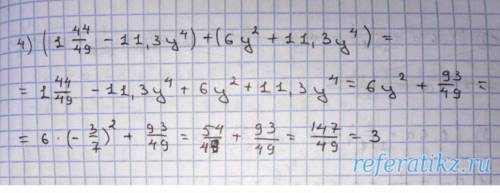 4) (1 44/49 - 11,3y⁴) + (6y² + 11,3y⁴) =
= 1 44/49 - 11,3y⁴ + 6y² + 11,3y⁴ = 6y² + 93/49 =
= 6 · (-3/7)² + 93/49 = 54/49 + 93/49 = 147/49 = 3
referatikz.ru